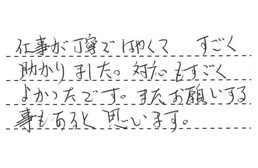 仕事が丁寧で はやくて すごく
助かりました。対応もすごく
よかったです。またお願いする
事もあると思います。